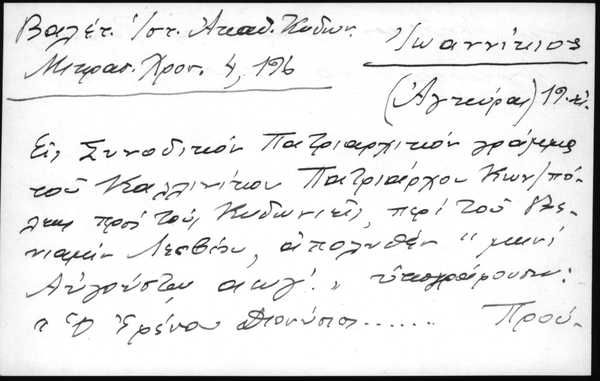 Βαλέτ. Ἱστ. Ἀκαδ. Κυδων.
Μιτρασ. Χρον. 4, 196
Ἰωαννίκιος
(Ἀγκύρας) 19. αἰ.
Εἰς Συνοδικόν Πατριαρχικόν γράμμα
τοῦ Καλλινίκου Πατριάρχου Κων/πό-
λεως πρός τούς Κυδωνιεῖς, περί τοῦ Βε-
νιαμίν Λεσβίου, ἀπολυθέν "μηνί
Αὐγούστου, αωγ'." ὑπογράφουσιν:
"Ὁ Ἐφέσου Διονύσιος....... Πρού-